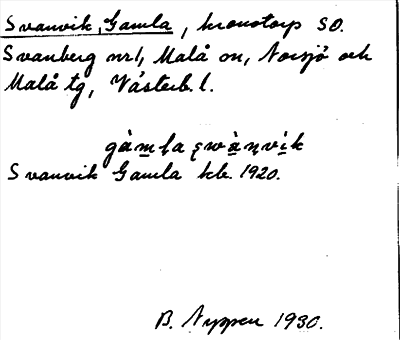 Svanvik, Gamla, kronotorp SO.
Svanberg nr1, Malå sn, Norsjö och
Malå tg, Västerb. l.
gàmla swànvík
Svanvik Gamla kb. 1920.
B. Nyppen 1930.